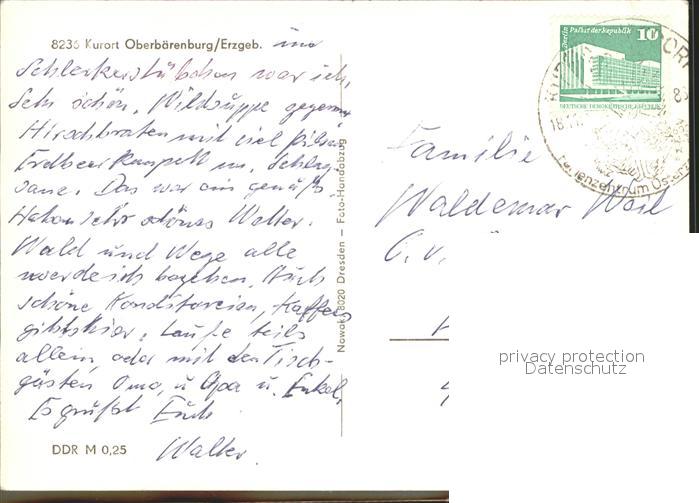 8236 Kurort Oberbärenburg/Erzgeb. im
Schleckerstübchen war ich,
Sehr schön, Wildsuppe gegessen
Hirschbraten mit viel Pilzen
Erdbeerkompott m. Schlag-
sane. Das war ein genuß.
Haben sehr schönes Wetter.
Wald und Wege alle
werde ich begehen. Auch
schöne Konditoreien, Kaffees
gibts hier. Laufe teils
allein, oder mit den Tisch-
gästen, Oma, u Opa u. Enkel.
Es grüßt Euch
Walter.
DDR M 0,25
Nowak, 8020 Dresden – Foto-Handabzug
Berlin Palast der Republik 10
DEUTSCHE DEMOKRATISCHE REPUBLIK
18.11.
Ferienzentrum Osterz
Familie
Waldemar Weil
privacy protection
Datenschutz